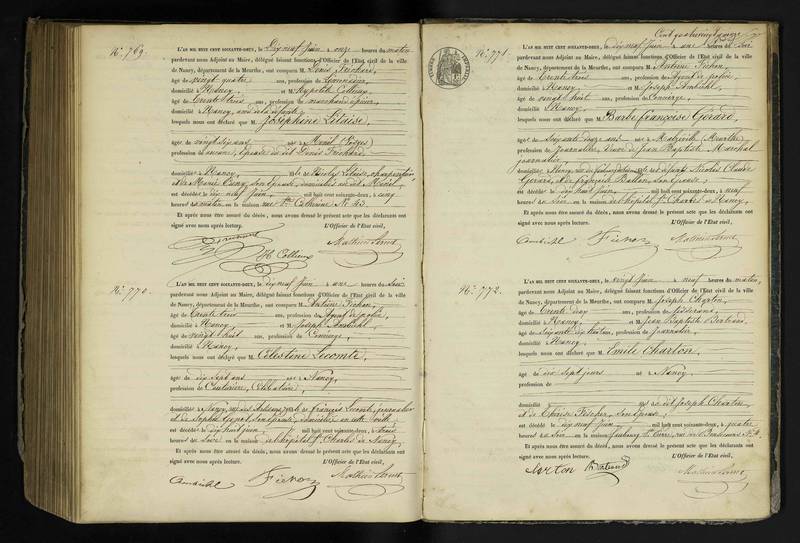 N.º 769.
L'AN MIL HUIT CENT SOIXANTE-DEUX, le Dix neuf Juin à onze heures du matin
pardevant nous Adjoint au Maire, délégué faisant fonctions d'Officier de l'Etat civil de la ville
de Nancy, département de la Meurthe, ont comparu M. Denis
âgé de vingt quatre ans, profession de
domicilié à Nancy, et M. Hypolite Collin
âgé de Trente trois ans, profession de marchand épicier,
domicilié à Nancy,
lesquels nous ont déclaré que M. Joséphine Litaise,
âgée de vingt six ans née à Ménil (Vosges)
profession d épouse du dit Denis
domiciliée à Nancy, fille de Nicolas Litaise,
et de Marie son épouse, domiciliés au dit Ménil,
est décédée le dix neuf Juin, mil huit cent soixante-deux, à cinq
heures du matin en la maison rue Ste. Catherine N.º 43.
Et après nous être assuré du décès, nous avons dressé le présent acte que les déclarants ont
signé avec nous après lecture. L'Officier de l'Etat civil,
N.º 770.
L'AN MIL HUIT CENT SOIXANTE-DEUX, le dix neuf Juin à une heures du soir
pardevant nous Adjoint au Maire, délégué faisant fonctions d'Officier de l'Etat civil de la ville
de Nancy, département de la Meurthe, ont comparu M. Antoine
âgé de Trente trois ans, profession de Agent de police,
domicilié à Nancy, et M. Joseph
âgé de vingt huit ans, profession de Concierge,
domicilié à Nancy,
lesquels nous ont déclaré que M. Célestine Lecomte,
âgée de dix sept ans née à Nancy,
profession de Couturière, Célibataire,
domiciliée à Nancy, rue des Artisans fille de François Lecomte, journalier
et de Sophie son épouse, domiciliés en cette ville,
est décédée le dix huit Juin, mil huit cent soixante-deux, à trois
heures du soir en la maison de l'hôpital St. Charles de Nancy,
Et après nous être assuré du décès, nous avons dressé le présent acte que les déclarants ont
signé avec nous après lecture. L'Officier de l'Etat civil,
N.º 771.
L'AN MIL HUIT CENT SOIXANTE-DEUX, le dix neuf Juin à une heures du soir
pardevant nous Adjoint au Maire, délégué faisant fonctions d'Officier de l'Etat civil de la ville
de Nancy, département de la Meurthe, ont comparu M. Antoine
âgé de Trente trois ans, profession de Agent de police,
domicilié à Nancy, et M. Joseph
âgé de vingt huit ans, profession de Concierge,
domicilié à Nancy,
lesquels nous ont déclaré que M. Barbe Françoise Gérard,
âgée de soixante douze ans née à Malzéville (Meurthe)
profession de journalière, Veuve de Jean Baptiste Maréchal
journalier,
domiciliée à Nancy, fille des défunts Nicolas Claude
Gérard, et Françoise son épouse,
est décédée le dix huit Juin, mil huit cent soixante-deux, à neuf
heures du soir en la maison de l'hôpital St. Charles de Nancy,
Et après nous être assuré du décès, nous avons dressé le présent acte que les déclarants ont
signé avec nous après lecture. L'Officier de l'Etat civil,
N.º 772.
L'AN MIL HUIT CENT SOIXANTE-DEUX, le vingt Juin à neuf heures du matin,
pardevant nous Adjoint au Maire, délégué faisant fonctions d'Officier de l'Etat civil de la ville
de Nancy, département de la Meurthe, ont comparu M. Joseph Charton,
âgé de Trente six ans, profession de tisserand,
domicilié à Nancy, et M. Jean Baptiste Bertrand
âgé de soixante trois ans, profession de Journalier,
domicilié à Nancy,
lesquels nous ont déclaré que M. Emile Charton,
âgé de dix sept jours né à Nancy,
profession de
domicilié fils du dit Joseph Charton,
et de Thérèse son épouse,
est décédé le dix neuf Juin, mil huit cent soixante-deux, à quatre
heures du soir en la maison faubourg St. Pierre,
Et après nous être assuré du décès, nous avons dressé le présent acte que les déclarants ont
signé avec nous après lecture. L'Officier de l'Etat civil,